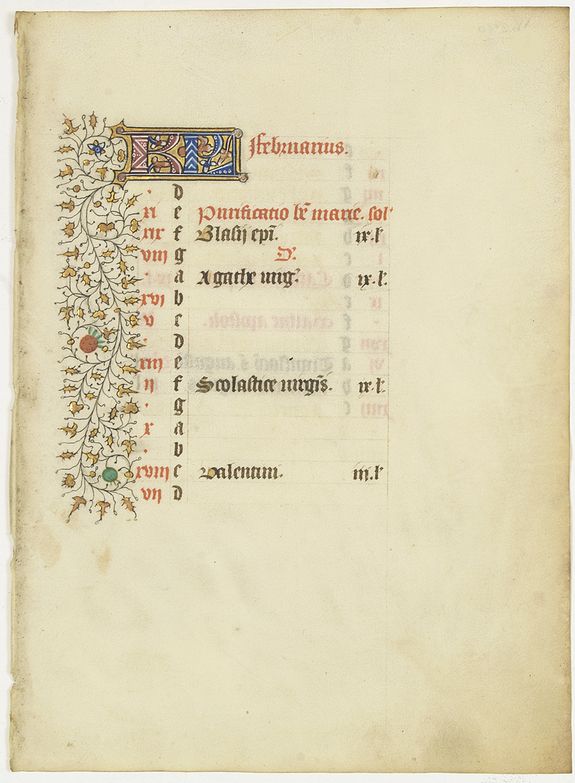 KL februarius.
d
xi e Purificatio bē marie. sol'
xix f Blasij epī. ix.l'
viii g D'.
a Agathe uirg'. ix.l'.
xvi b
v c
d
xiii e
ii f Scolastice uirgīs. ix.l'
g
x a
b
xviii c Valentini. iii.l'
vii d